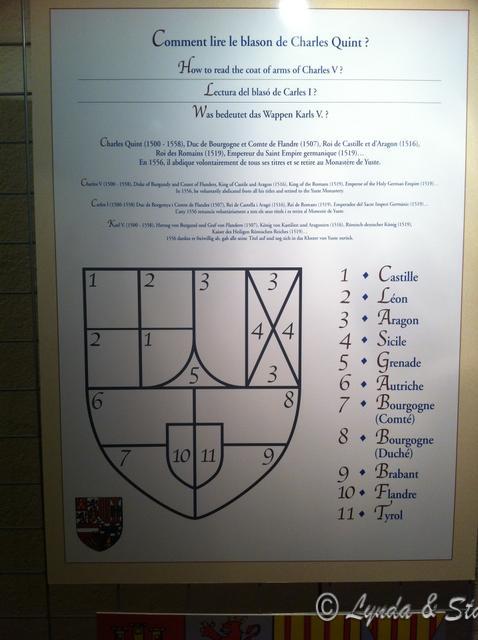 Comment lire le blason de Charles Quint ?
How to read the coat of arms of Charles V ?
Lectura del blasó de Carles I ?
Was bedeutet das Wappen Karls V. ?
Charles Quint (1500 - 1558), Duc de Bourgogne et Comte de Flandre (1507), Roi de Castille et d'Aragon (1516),
Roi des Romains (1519), Empereur du Saint Empire germanique (1519)…
En 1556, il abdique volontairement de tous ses titres et se retire au Monastère de Yuste.
Charles V (1500 - 1558), Duke of Burgundy and Count of Flanders, King of Castile and Aragon (1516), King of the Romans (1519), Emperor of the Holy German Empire (1519)…
In 1556, he voluntarily abdicated from all his titles and retired to the Yuste Monastery.
Carles I (1500-1558) Duc de Borgonya i Comte de Flandes (1507), Rei de Castella i Aragó (1516), Rei de Romans (1519), Emperador del Sacre Imperi Germànic (1519)…
l'any 1556 renuncia voluntàriament a tots els seus títols i es retira al Monestir de Yuste
Karl V. (1500 - 1558), Herzog von Burgund und Graf von Flandern (1507), König von Kastilien und Aragonien (1516), Römisch-deutscher König (1519),
Kaiser des Heiligen Römischen Reiches (1519)…
1556 dankte er freiwillig ab, gab alle seine Titel auf und zog sich in das Kloster von Yuste zurück.
1 2 3 3
2 1 4 4
5 3
6 8
7 10 11 9
1 ♦ Castille
2 ♦ Léon
3 ♦ Aragon
4 ♦ Sicile
5 ♦ Grenade
6 ♦ Autriche
7 ♦ Bourgogne
(Comté)
8 ♦ Bourgogne
(Duché)
9 ♦ Brabant
10 ♦ Flandre
11 ♦ Tyrol
© Lynda &